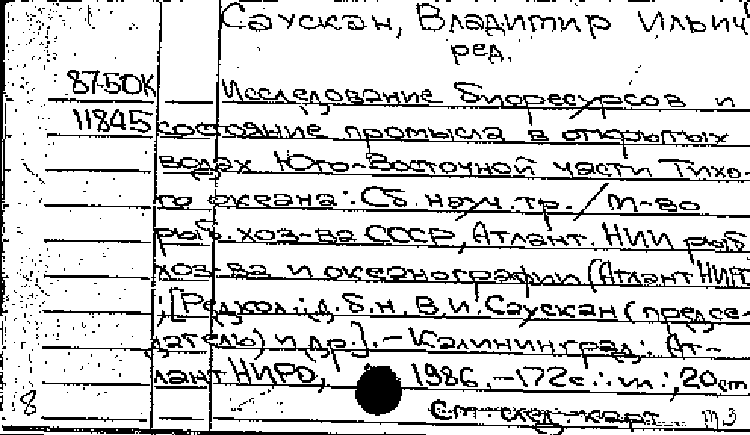 Саускан, Владимир Ильич
ред.
87-БОК Исследование биоресурсов и
11845 состояние промысла в открытых
водах Юго-Восточной части Тихо-
го океана: Сб. науч. тр. / М-во
рыб. хоз-ва СССР, Атлант. НИИ рыб.
хоз-ва и океанографии (АтлантНИРО
; [Редкол.: д.б.н. В.И. Саускан (предсе-
датель) и др.]. - Калининград: Ат-
лантНИРО, 1986. - 172 с.: ил.; 20 см
8 См. след. карт.